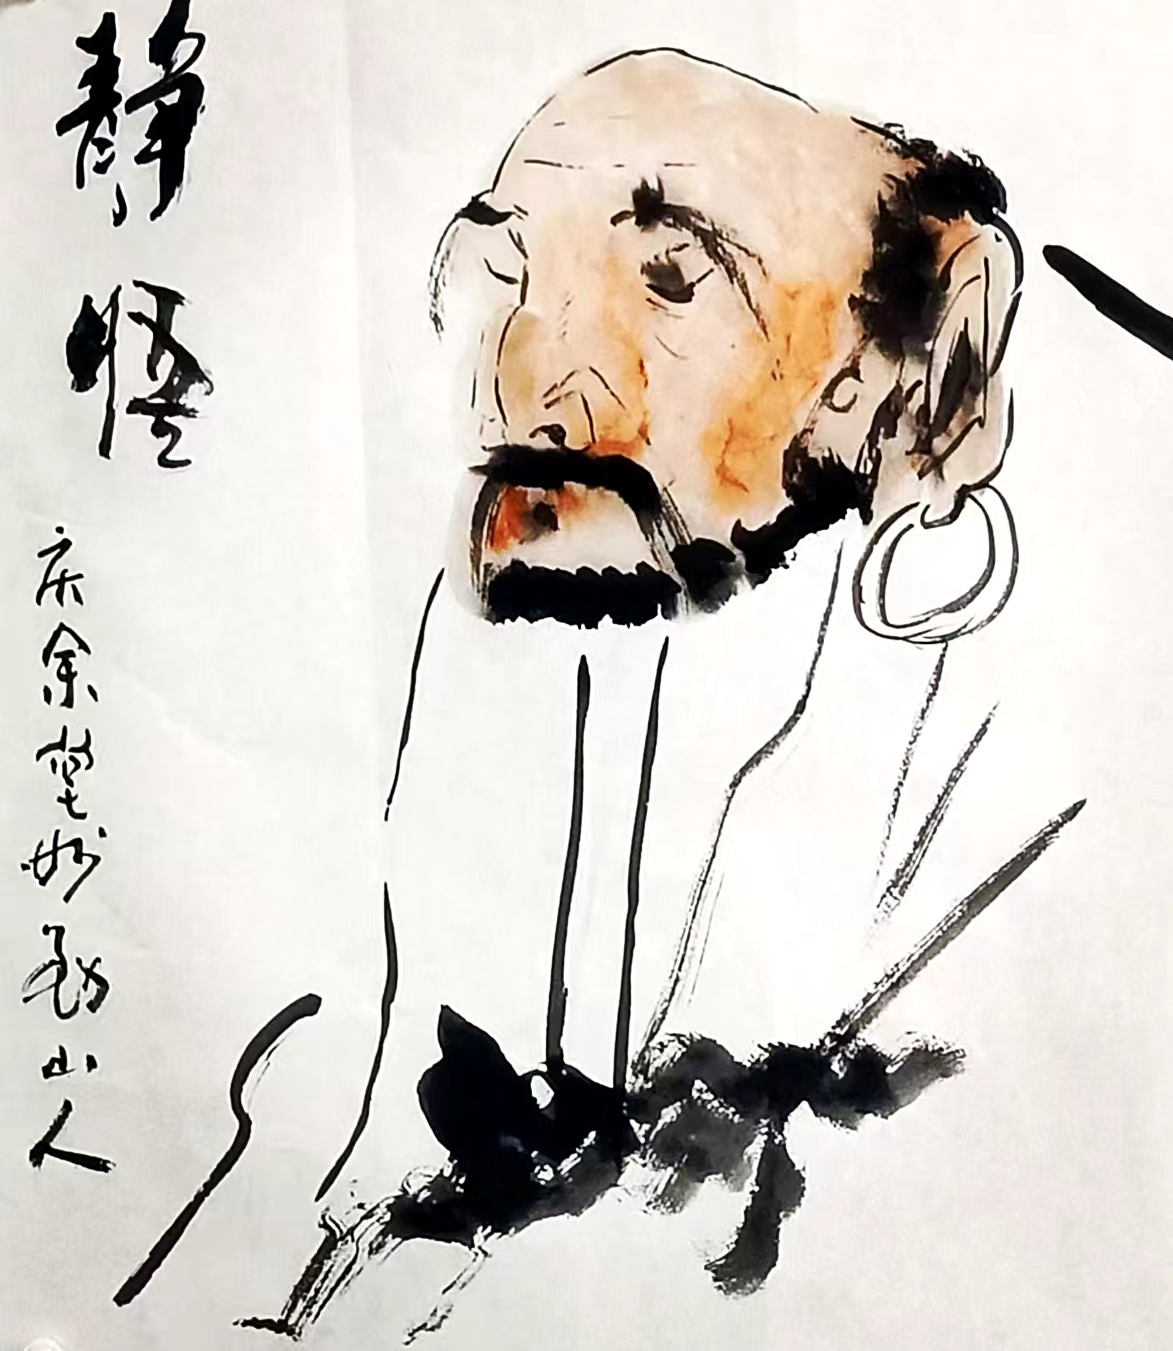 静悟
庆余堂妙山人